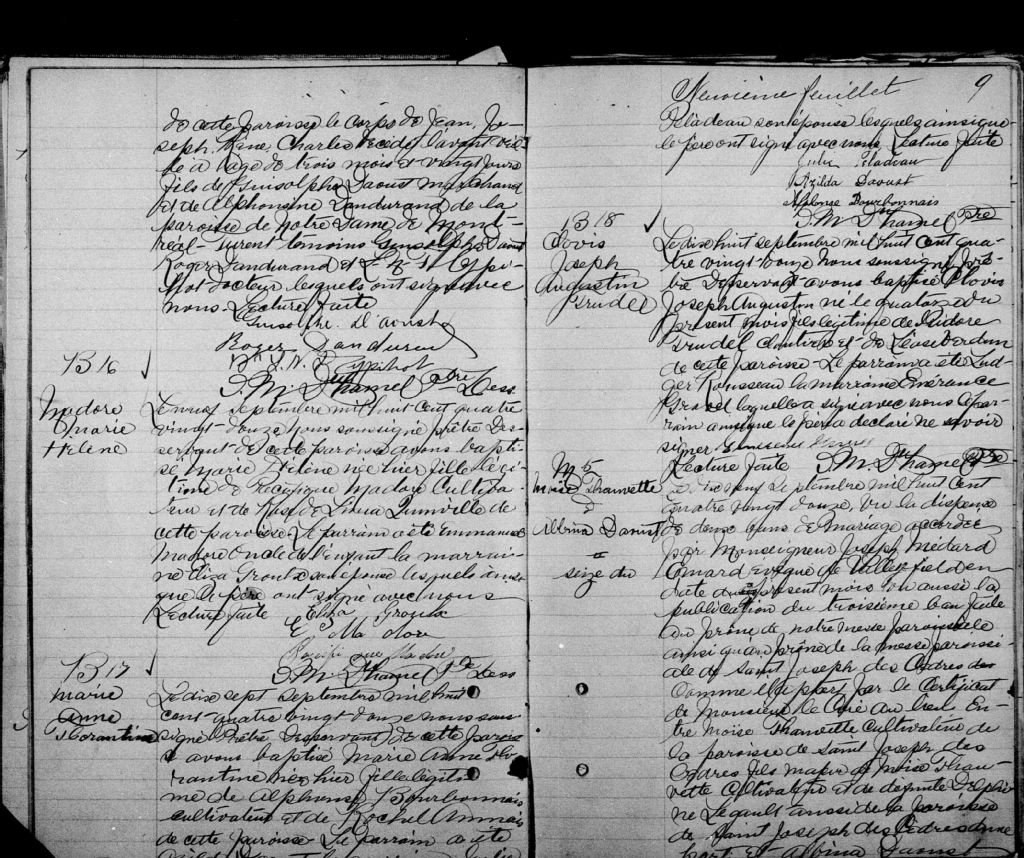 de cette paroisse le corps de Jean, Jo-
seph, René, Charles décédé l'avant veil-
le à l'age de trois mois et vingt jours
fils de Daoust marchand
et de Alphonsine Dandurand de la
paroisse de Notre Dame de Mont-
réal. Furent témoins Daoust
Roger Dandurand et
docteur lesquels ont signé avec
nous. Lecture faite
D'aoust
Roger Dandurand
J. M. Duhamel Ptre Dess
B 16
Madore
Marie
Hélène
Le neuf septembre mil huit cent quatre
vingt-douze nous soussigné prêtre Des-
servant de cette paroisse avons bapti-
sé Marie Hélène née hier fille légi-
time de Madore Cultiva-
teur et de Rose de Lima Quinville de
cette paroisse. Le parrain a été Emmanuel
Madore oncle de l'enfant la marrai-
ne Eliza Groulx son épouse lesquels ainsi
que le père ont signé avec nous
Lecture faite Eliza Groulx
E Madore
Madore
J. M. Duhamel Ptre Dess
B 17
Marie
Anne
Florantine
Le dix sept septembre mil huit
cent quatre vingt douze nous sous
signé Prêtre Desservant de cette parois
se avons baptisé Marie Anne Flo-
rantine née hier fille légiti-
me de Alphonse Bourbonnais
cultivateur et de
de cette paroisse Le parrain a été
Neuvième feuillet 9
Péladeau son épouse lesquels ainsi que
le père ont signé avec nous, Lecture faite
Péladeau
Azilda Daoust
Alphonse Bourbonnais
J. M. Duhamel Ptre
B 18
Clovis
Joseph
Augustin
Trudel
Le dix huit septembre mil huit cent qua-
tre vingt douze nous soussigné prê-
tre Desservant avons baptisé Clovis
Joseph Augustin né le quatorze du
présent mois fils légitime de Isidore
Trudel et de Verdun
de cette paroisse. Le parrain a été Lud-
ger Rousseau la marraine
laquelle a signé avec nous le par-
rain ainsi que le père a déclaré ne savoir
signer
Lecture faite J. M. Duhamel Ptre
M 5
Moïse Charrette
&
Albina Daoust
=
seize du
Le dix neuf septembre mil huit cent
quatre vingt douze, vu la dispense
de deux bans de Mariage accordée
par Monseigneur Joseph Médard
Emard Evêque de Valleyfield en
date du présent mois vu aussi la
publication du troisième ban faite
au prône de notre messe paroissiale
ainsi qu'au prône de la messe paroissi-
ale de Saint Joseph des Cèdres
comme il appert par le Certificat
de Monsieur le Curé du lieu En-
tre Moïse Charrette Cultivateur de
la paroisse de Saint Joseph des
Cèdres fils majeur de Moïse Char-
rette cultivateur et de défunte Delphi-
ne Legault aussi de la paroisse
de Saint Joseph des Cèdres d'une
part et Albina Daoust